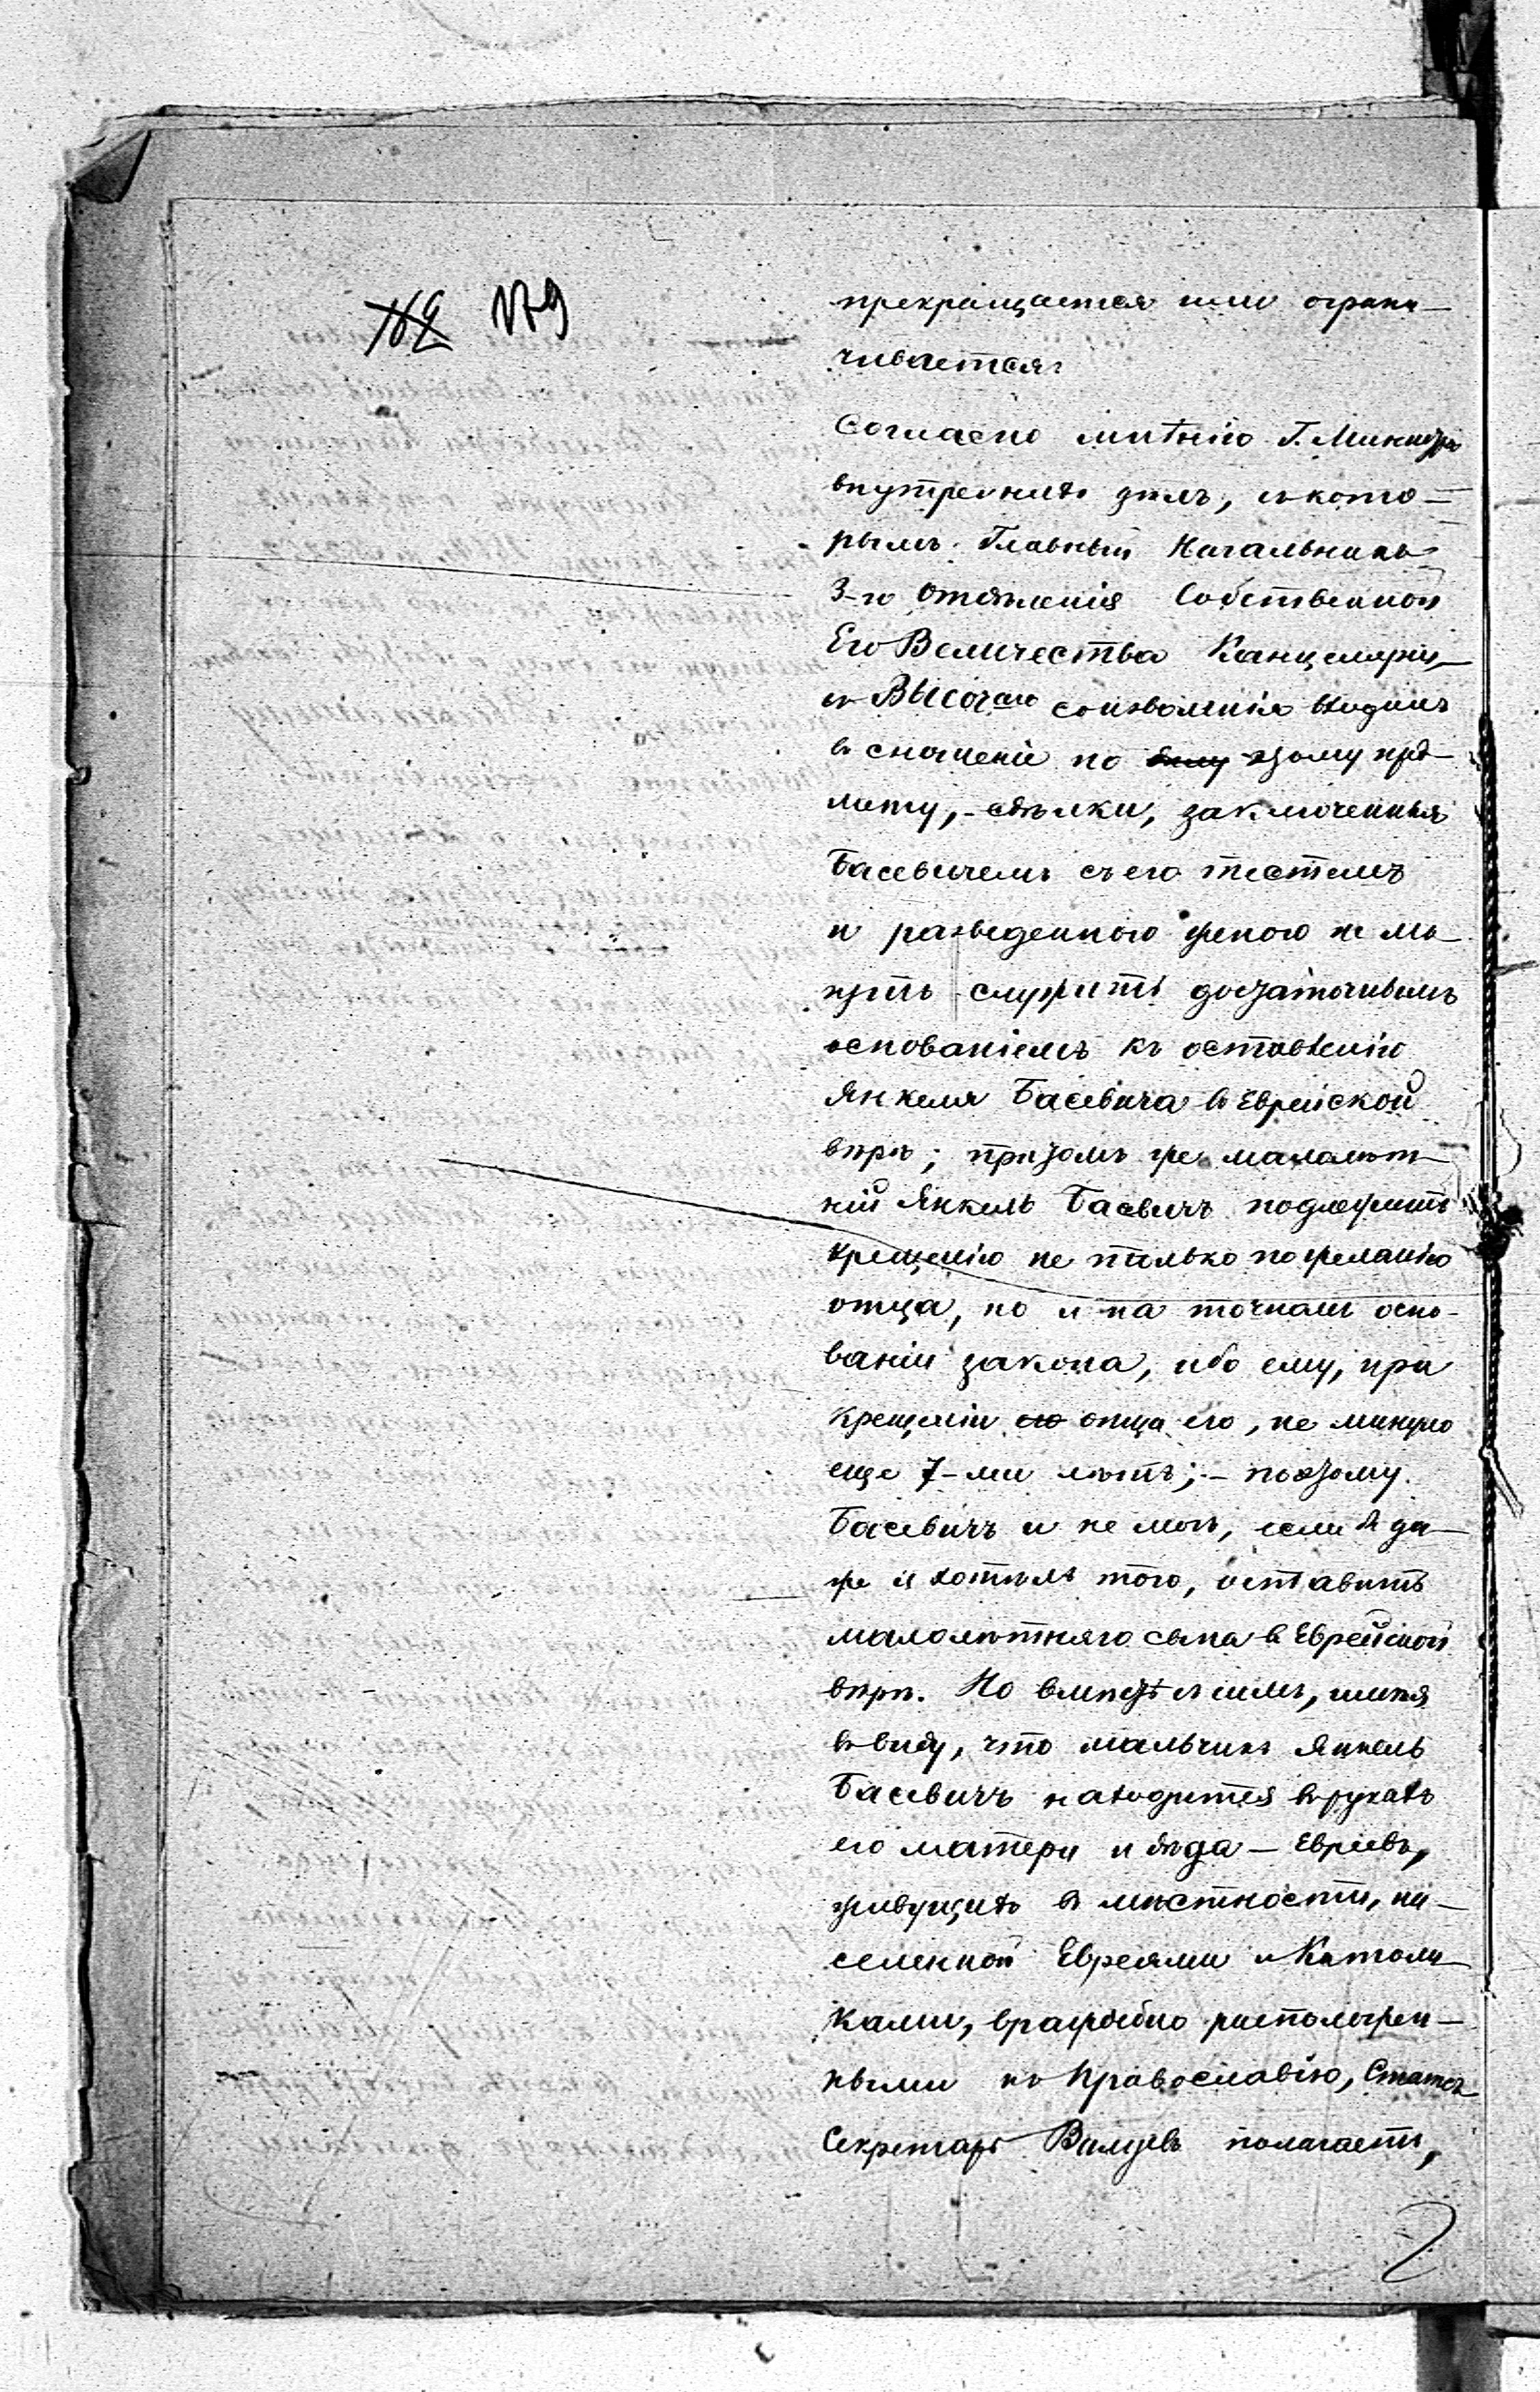 179
прекращается или ограни-
чивается.
Согласно мнѣнію Г. Министра
внутреннихъ дѣлъ, съ кото-
рымъ Главный Начальникъ
3-го Отдѣленія Собственной
Его Величества Канцеляріи,
съ Высочго соизволенія входилъ
въ сношеніе по этому пред-
мету, - сдѣлки, заключенныя
Басевичемъ съ его тестемъ
и разведенною женою не мо-
жетъ служить достаточнымъ
основаніемъ къ оставленію
Янкеля Басевича въ Еврейской
вѣрѣ; притомъ же малолѣт-
ній Янкель Басевичъ подлежитъ
крещенію не только по желанію
отца, но и на точномъ осно-
ваніи закона, ибо ему, при
крещеніи отца его, не минуло
еще 7-ми лѣтъ; - поэтому
Басевичъ и не могъ, если бъ да-
же и хотѣлъ того, оставить
малолѣтняго сына въ Еврейской
вѣрѣ. Но вмѣстѣ съ симъ, имѣя
въ виду, что мальчикъ Янкель
Басевичъ находится въ рукахъ
его матери и дѣда - Евреевъ,
живущихъ въ мѣстности, на-
селенной Евреями и Католи-
ками, враждебно расположен-
ными къ Православію, Статсъ
Секретарь Валуевъ полагаетъ,
2